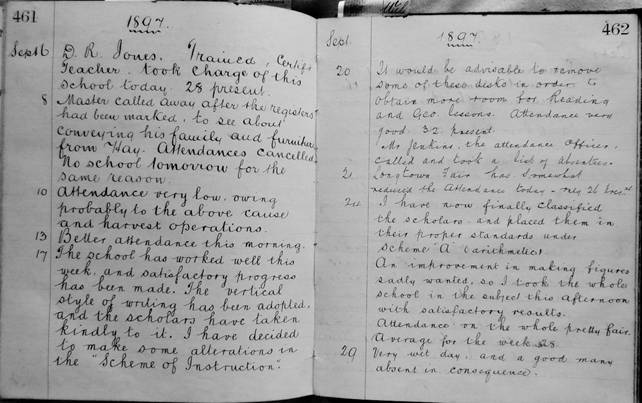 461
1897.
Sept 6 D. R. Jones, Trained, Certifd
Teacher, took charge of this
school today. 28 present.
8 Master called away after the registers
had been marked, to see about
conveying his family and furniture
from Hay. Attendances cancelled.
No school tomorrow for the
same reason.
10 Attendance very low, owing
probably to the above cause
and harvest operations.
13 Better attendance this morning.
17 The school has worked well this
week, and satisfactory progress
has been made. The vertical
style of writing has been adopted,
and the scholars have taken
kindly to it. I have decided
to make some alterations in
the "Scheme of Instruction".
462
Sept. 1897
20 It would be advisable to remove
some of these desks in order to
obtain more room for Reading
and Geo lessons. Attendance very
good 32 present.
Mr Jenkins, the attendance officer,
called and took a list of absentees.
2 Longtown Fair has somewhat
reduced the attendance today - only 26
24 I have now finally classified
the scholars and placed them in
their proper standards under
Scheme "A" (arithmetic)
An improvement in making figures
sadly wanted, so I took the whole
school in the subject this afternoon
with satisfactory results.
Attendance on the whole pretty fair.
Average for the week 28.
29 Very wet day, and a good many
absent in consequence.